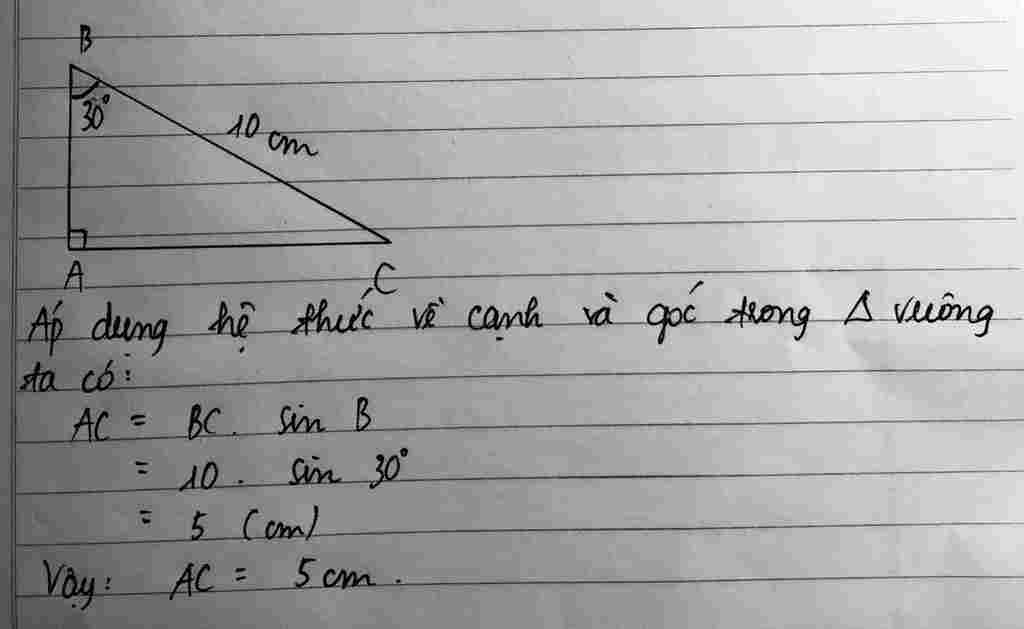 B
30°
10 cm
A
C
Áp dụng hệ thức về cạnh và góc trong Δ vuông
ta có:
AC = BC. sin B
= 10. sin 30°
= 5 (cm)
Vậy: AC = 5cm.